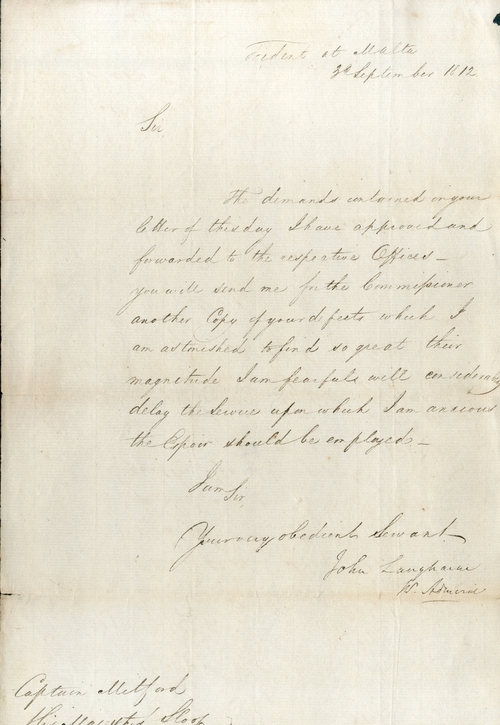 Trident at Malta
3d September 1812
Sir
The demands contained in your
letter of this day I have approved and
forwarded to the respective Offices_
you will send me for the Commissioner
another Copy of your defects which I
am astonished to find so great their
magnitude I am fearful will considerably
delay the Service upon which I am anxious
the Espoir should be employed_
I am Sir
Your very obedient Servant
John Laugharne
R. Admiral
Captain Mitford
His Majestys Sloop